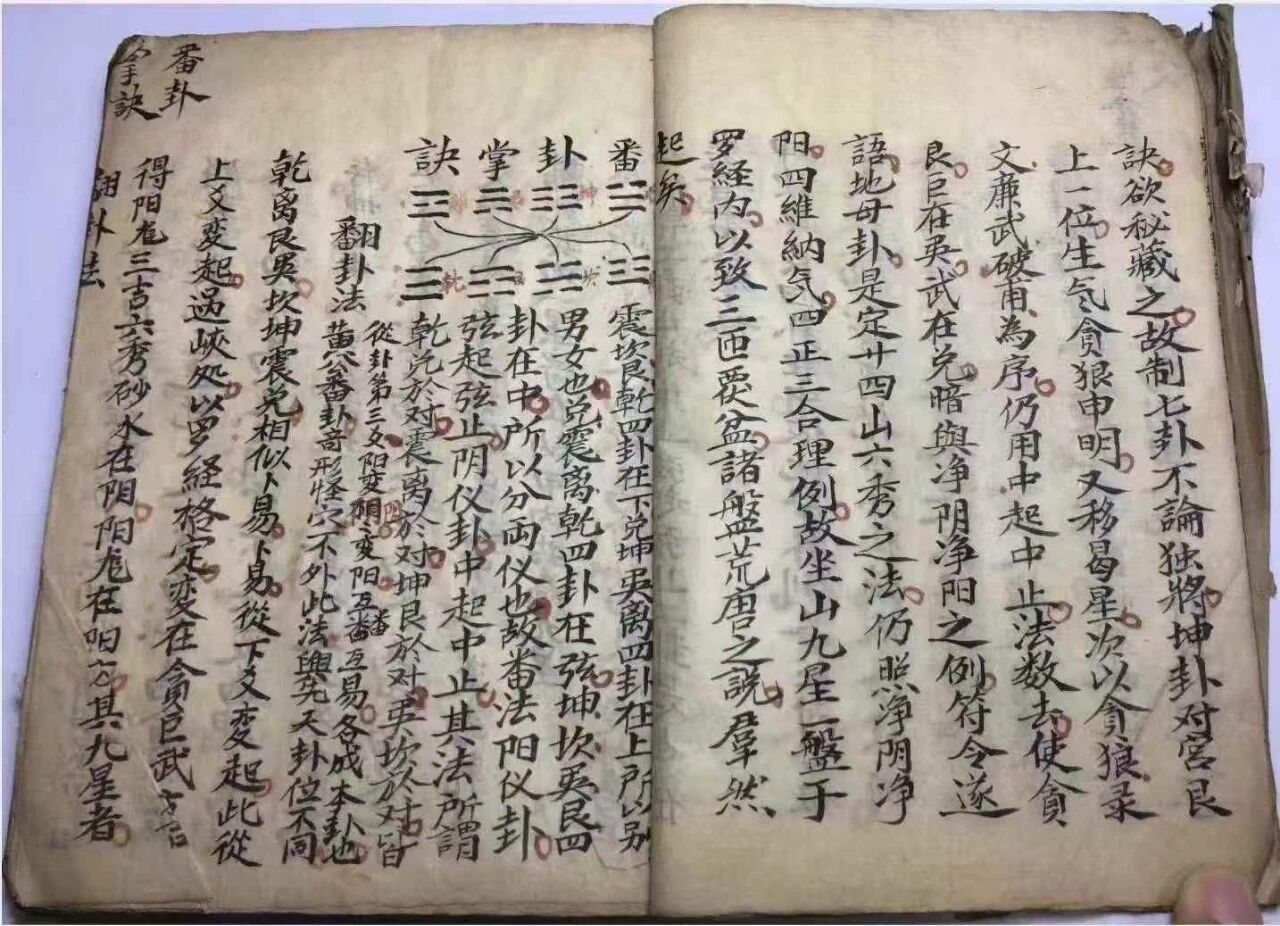 訣欲秘藏之故制七卦不論独將坤卦对宮艮
上一位生气貪狼申明又移曷星次以貪狼录
文廉武破甫為序仍用中起中止法数去使貪
艮巨在巽武在兑暗與净阴净阳之例符令遂
語地母卦是定廿四山六秀之法仍照净阴净
阳四維納気四正三合理例故坐山九星一盤于
罗经内以致三覆盆諸盤荒唐之説羣然
起矣
番卦掌訣
震坎艮乾四卦在下兑坤巽离四卦在上所以别
男女也兑震离乾四卦在弦坤坎巽艮四
卦在中所以分両仪也故番法阳仪卦
弦起弦止阴仪卦中起中止其法所謂
乾兑於对震离於对坤艮於对巽坎於对皆
翻卦法
從卦第三爻阳变阴相变阳互番互易各成本卦也
黄公番卦奇形怪穴不外此法與先天卦位不同
乾离艮巽坎坤震兑相似卜易卜易從下爻变起此從
上爻变起過峽処以罗経格定变在貪巨武方
得阳龙三吉六秀砂水在阴阳龙在阳方其九星者
番卦
掌訣
翻卦法